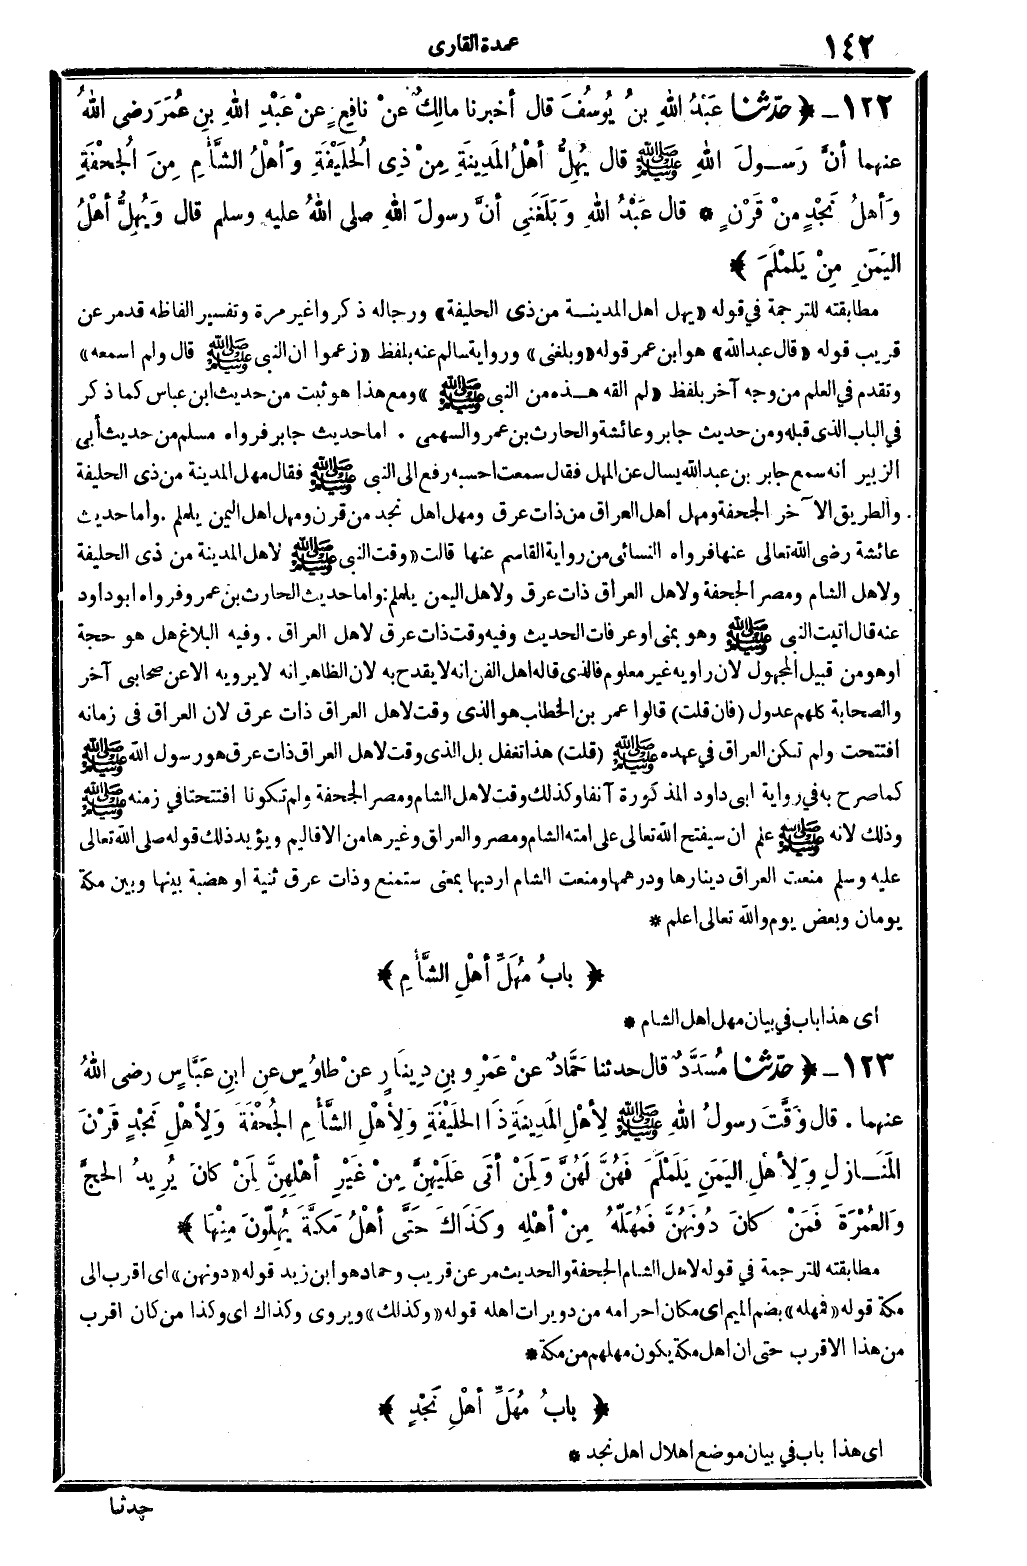 ١٤٢
عمدة القارى
١٢٢ ـ ﴿ حدّثنا عَبْدُ اللهِ بنُ يُوسُفَ قال أخبرنا مالِكٌ عنْ نافِعٍ عنْ عَبْدِ اللهِ بنِ عُمَرَ رضى اللهُ
عنهما أنَّ رَسـولَ اللهِ ﷺ قال يُهِلُّ أهْلُ المَدِينَةِ مِنْ ذِى الحُلَيْفَةِ وَأهْلُ الشَّأْمِ مِنَ الجُحْفَةِ
وَأهلُ نَجْدٍ مِنْ قَرْنٍ * قال عَبْدُ اللهِ وَبَلَغَنِى أنَّ رسولَ اللهِ صلى اللهُ عليهِ وسلم قال وَيُهِلُّ أهْلُ
اليَمَنِ مِنْ يَلَمْلَمَ ﴾
مطابقته للترجمة فى قوله «يهل اهل المدينـــة من ذى الحليفة» ورجاله ذكروا غير مرة وتفسير الفاظه قد مر عن
قريب قوله «قال عبدالله» هو ابن عمر قوله «وبلغنى» ورواية سالم عنه بلفظ «زعموا ان النبى ﷺ قال ولم اسمعه»
وتقدم فى العلم من وجه آخر بلفظ «لم افقه هـــذه من النبى ﷺ» ومع هذا هو ثبت من حديث ابن عباس كما ذكر
فى الباب الذى قبله ومن حديث جابر وعائشة والحارث بن عمرو السهمى . اما حديث جابر فرواه مسلم من حديث أبى
الزبير أنه سمع جابر بن عبدالله يسال عن المهل فقال سمعت احسبه رفع الى النبى ﷺ فقال مهل المدينة من ذى الحليفة
والطريق الآخر الجحفة ومهل أهل العراق من ذات عرق ومهل اهل نجد من قرن ومهل اهل اليمن يلملم . واما حديث
عائشة رضى الله تعالى عنها فرواه النسائى من رواية القاسم عنها قالت «وقت النبى ﷺ لاهل المدينة من ذى الحليفة
ولاهل الشام ومصر الجحفة ولاهل العراق ذات عرق ولاهل اليمن يلملم: واما حديث الحارث بن عمرو فرواه ابو داود
عنه قال اتيت النبى ﷺ وهو بمنى او عرفات الحديث وفيه وقت ذات عرق لاهل العراق . وفيه البلاغ هل هو حجة
او هو من قبيل المجهول لان راويه غير معلوم فالذى قاله اهل الفن انه لا يقدح به لان الظاهر انه لا يرويه الا عن صحابى آخر
والصحابة كلهم عدول (فان قلت) قالوا عمر بن الخطاب هو الذى وقت لاهل العراق ذات عرق لان العراق فى زمانه
افتتحت ولم تكن العراق فى عهده ﷺ (قلت) هذا تغفل بل الذى وقت لاهل العراق ذات عرق هو رسول الله ﷺ
كما صرح به فى رواية ابى داود المذكورة آنفا وكذلك وقت لاهل الشام ومصر الجحفة ولم تكونا افتتحتا فى زمنه ﷺ
وذلك لانه ﷺ علم ان سيفتح الله تعالى على امته الشام ومصر والعراق وغيرها من الاقاليم ويؤيد ذلك قوله صلى الله تعالى
عليه وسلم منعت العراق دينارها ودرهمها ومنعت الشام اردبها بمعنى ستمنع وذات عرق ثنية او هضبة بينها وبين مكة
يومان وبعض يوم والله تعالى اعلم *
﴿ بابُ مُهَلِّ أهْلِ الشَّأْمِ ﴾
اى هذا باب فى بيان مهل اهل الشام *
١٢٣ ـ ﴿ حدّثنا مُسَدَّدٌ قال حدثنا حَمَّادٌ عنْ عَمْرِو بنِ دِينَارٍ عنْ طاوُسٍ عنِ ابنِ عَبَّاسٍ رضى اللهُ
عنهما . قال وَقَّتَ رسولُ اللهِ ﷺ لِأهْلِ المَدِينَةِ ذَا الحُلَيْفَةِ وَلِأهْلِ الشَّأْمِ الجُحْفَةَ وَلِأهْلِ نَجْدٍ قَرْنَ
المَنَـازِلِ وَلِأهْلِ اليَمَنِ يَلَمْلَمَ فَهُنَّ لَهُنَّ وَلِمَنْ أتَى عَلَيْهِنَّ مِنْ غَيْرِ أهْلِهِنَّ لِمَنْ كانَ يُرِيدُ الحجَّ
وَالعُمْرَةَ فَمَنْ كانَ دُونَهُنَّ فَمُهَلُّهُ مِنْ أهْلِهِ وكَذَاكَ حَتَّى أهْلُ مَكَّةَ يُهِلُّونَ مِنْهَا ﴾
مطابقته للترجمة فى قوله لاهل الشام الجحفة والحديث مر عن قريب وحماد هو ابن زيد قوله «دونهن» اى اقرب الى
مكة قوله «فمهله» بضم الميم اى مكان احرامه من دويرات اهله قوله «وكذلك» ويروى وكذاك اى وكذا من كان اقرب
من هذا الاقرب حتى ان اهل مكة يكون مهلهم من مكة *
﴿ بابُ مُهَلِّ أهْلِ نَجْدٍ ﴾
اى هذا باب فى بيان موضع اهلال اهل نجد *
حدثنا